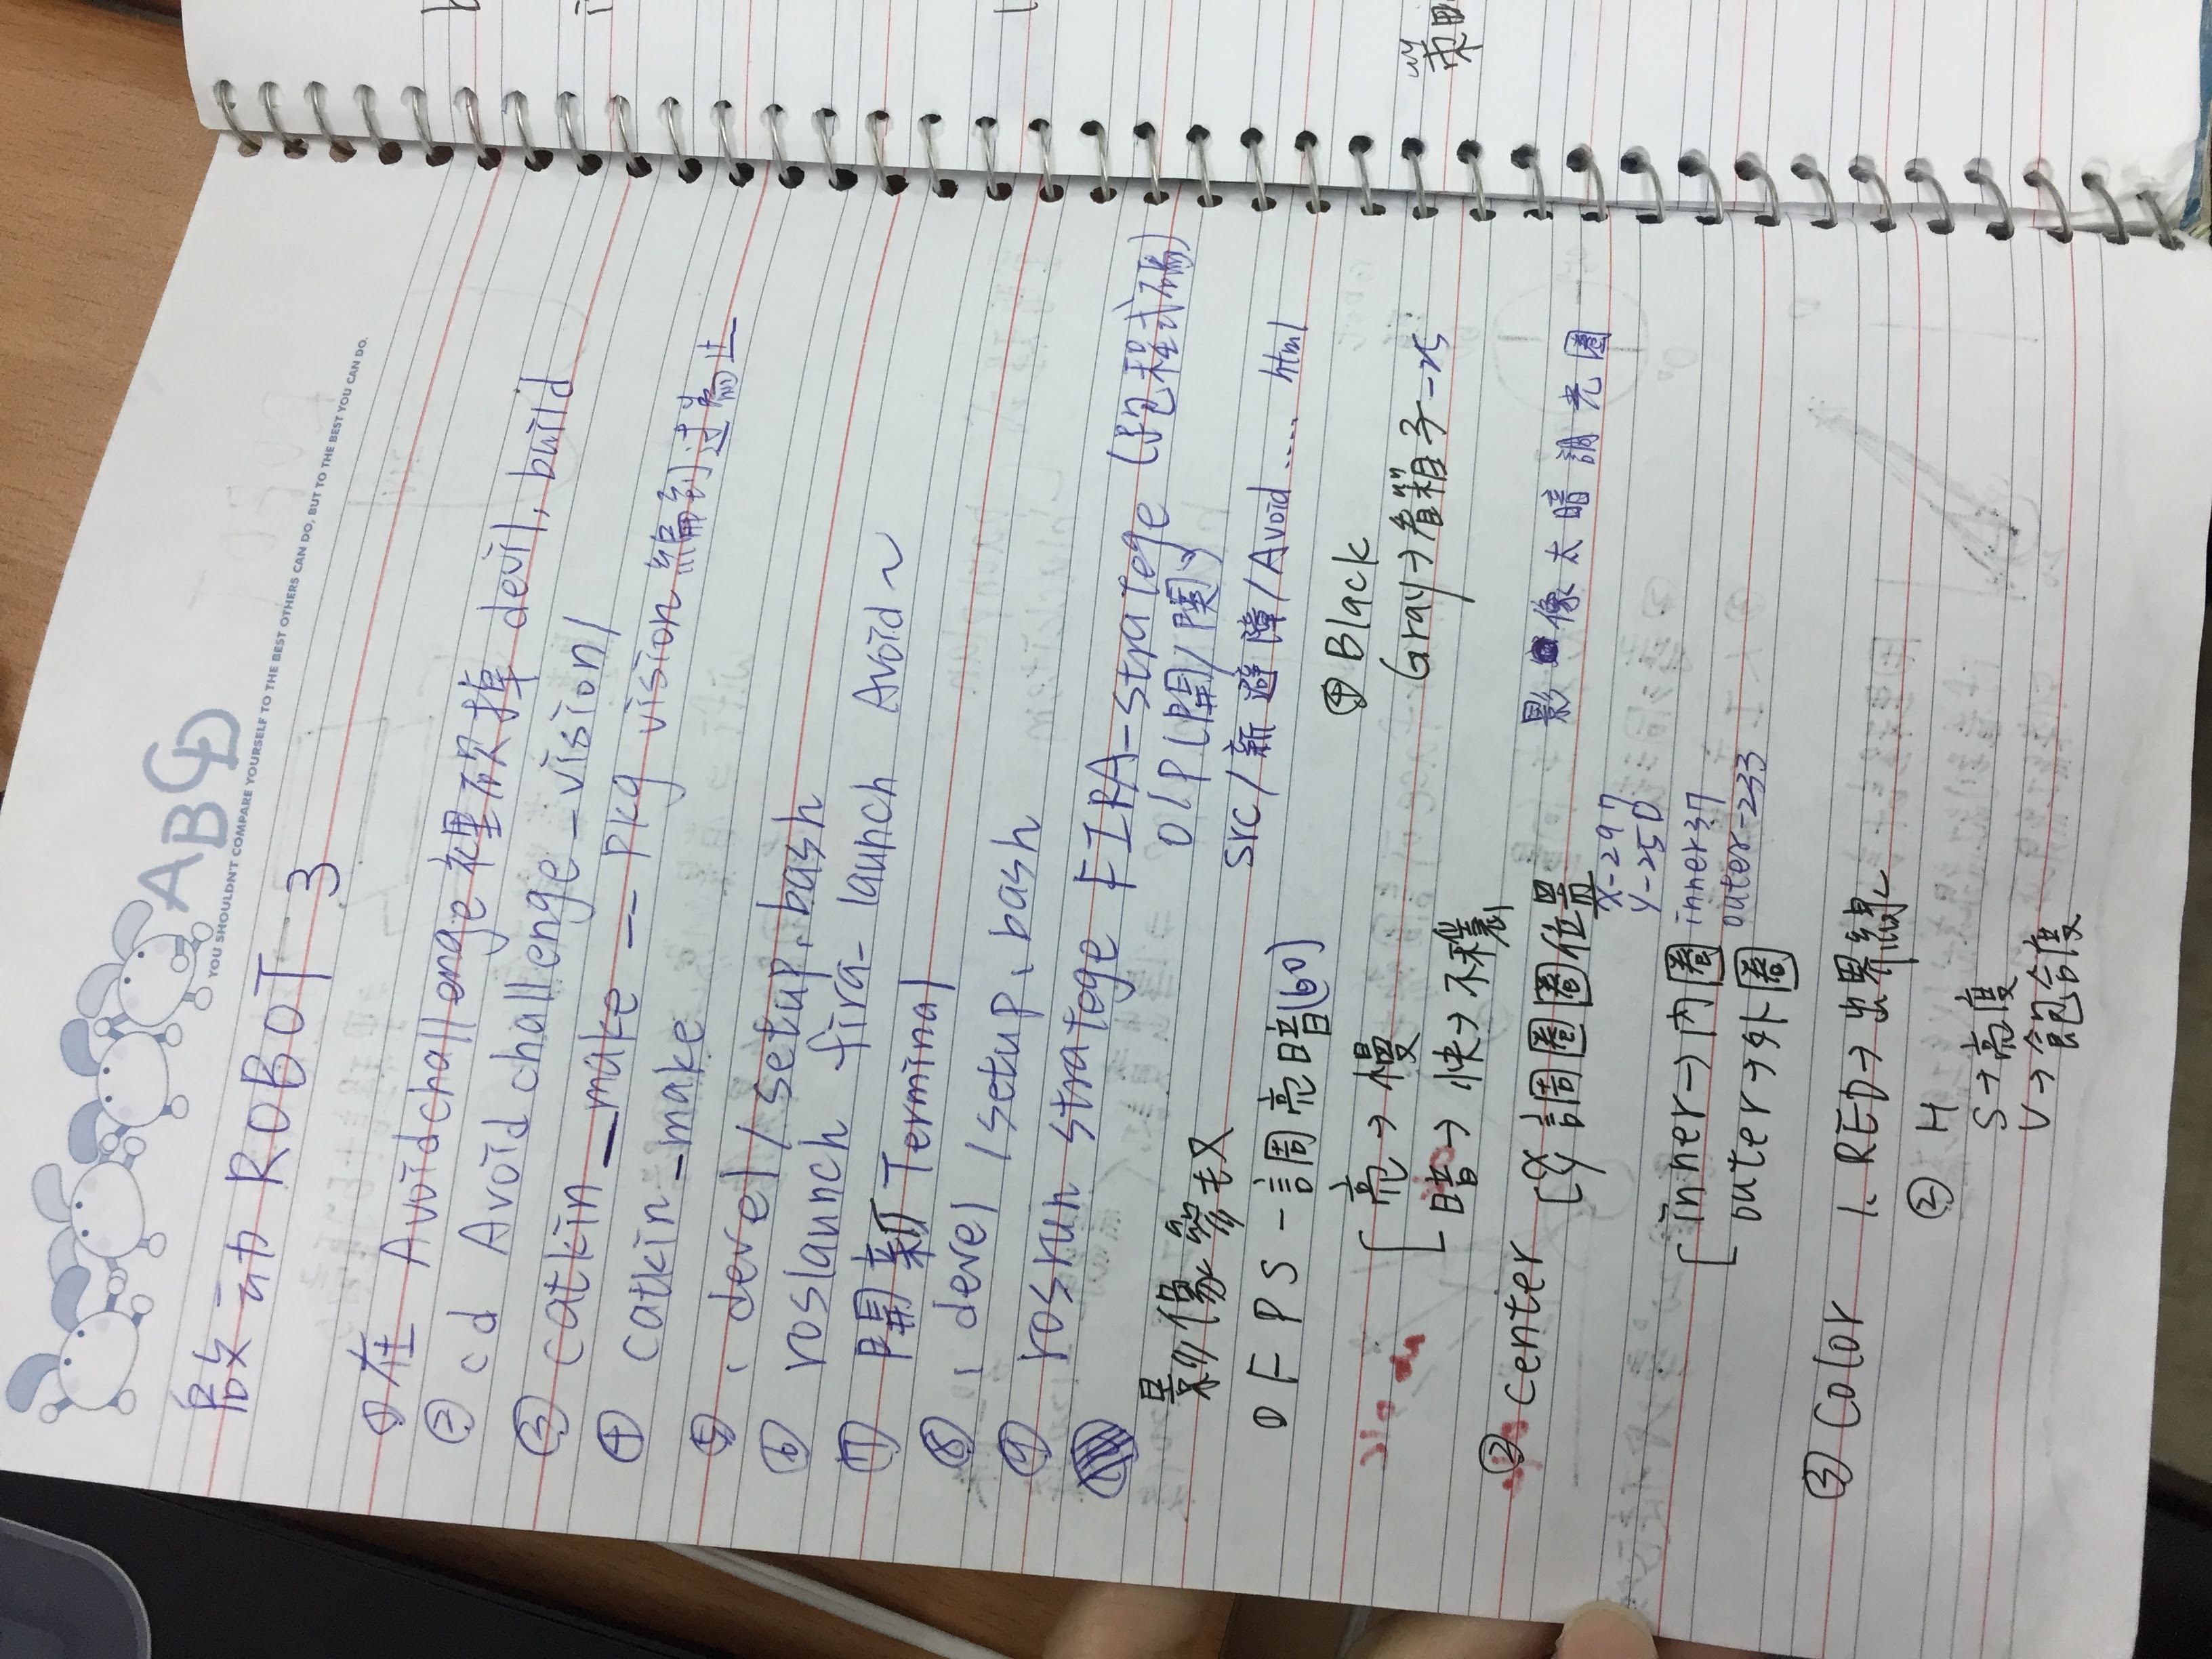 ABCD
YOU SHOULDN'T COMPARE YOURSELF TO THE BEST OTHERS CAN DO, BUT TO THE BEST YOU CAN DO.
啟动 ROBOT 3
① 在 Avoidchallenge 裡砍掉 devil, build
② cd Avoidchallenge_vision/
③ catkin_make -- pkg vision 編到过為止
④ catkin_make
⑤ . devel/setup.bash
⑥ roslaunch fira-launch Avoid~
⑦ 開新 Terminal
⑧ . devel /setup.bash
⑨ rosrun stratege FIRA-stratege (跑程式碼)
O/P(開/関)
src/新避障/Avoid .... html
影像參
① FPS - 調亮暗(60)
亮→慢
暗→快→不穩
② center
x
y 調圈圈位置
x-297
y-250
inner→內圈 inner37
outer→外圈 outer-233
③ Color 1. RED→出界線
② H
S→亮度
V→飽合度
④ Black
Gray→看箱子-25
影像太暗調光圈
策略